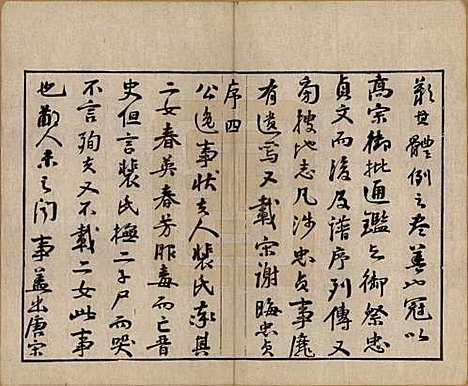 歎其體例之盡善也冠以
高宗御批通鑑之御祭忠
貞文而後及譜序列傳又
旁搜地志凡涉忠貞事靡
有遺焉又載宋謝晦忠貞
序四
公逸事狀夫人裴氏率其
二女春英春芳昨毒而亡晉
史但言裴氏撫二子尸而哭
不言殉夫又不載二女此事
也鄙人未之聞事蓋出唐宋